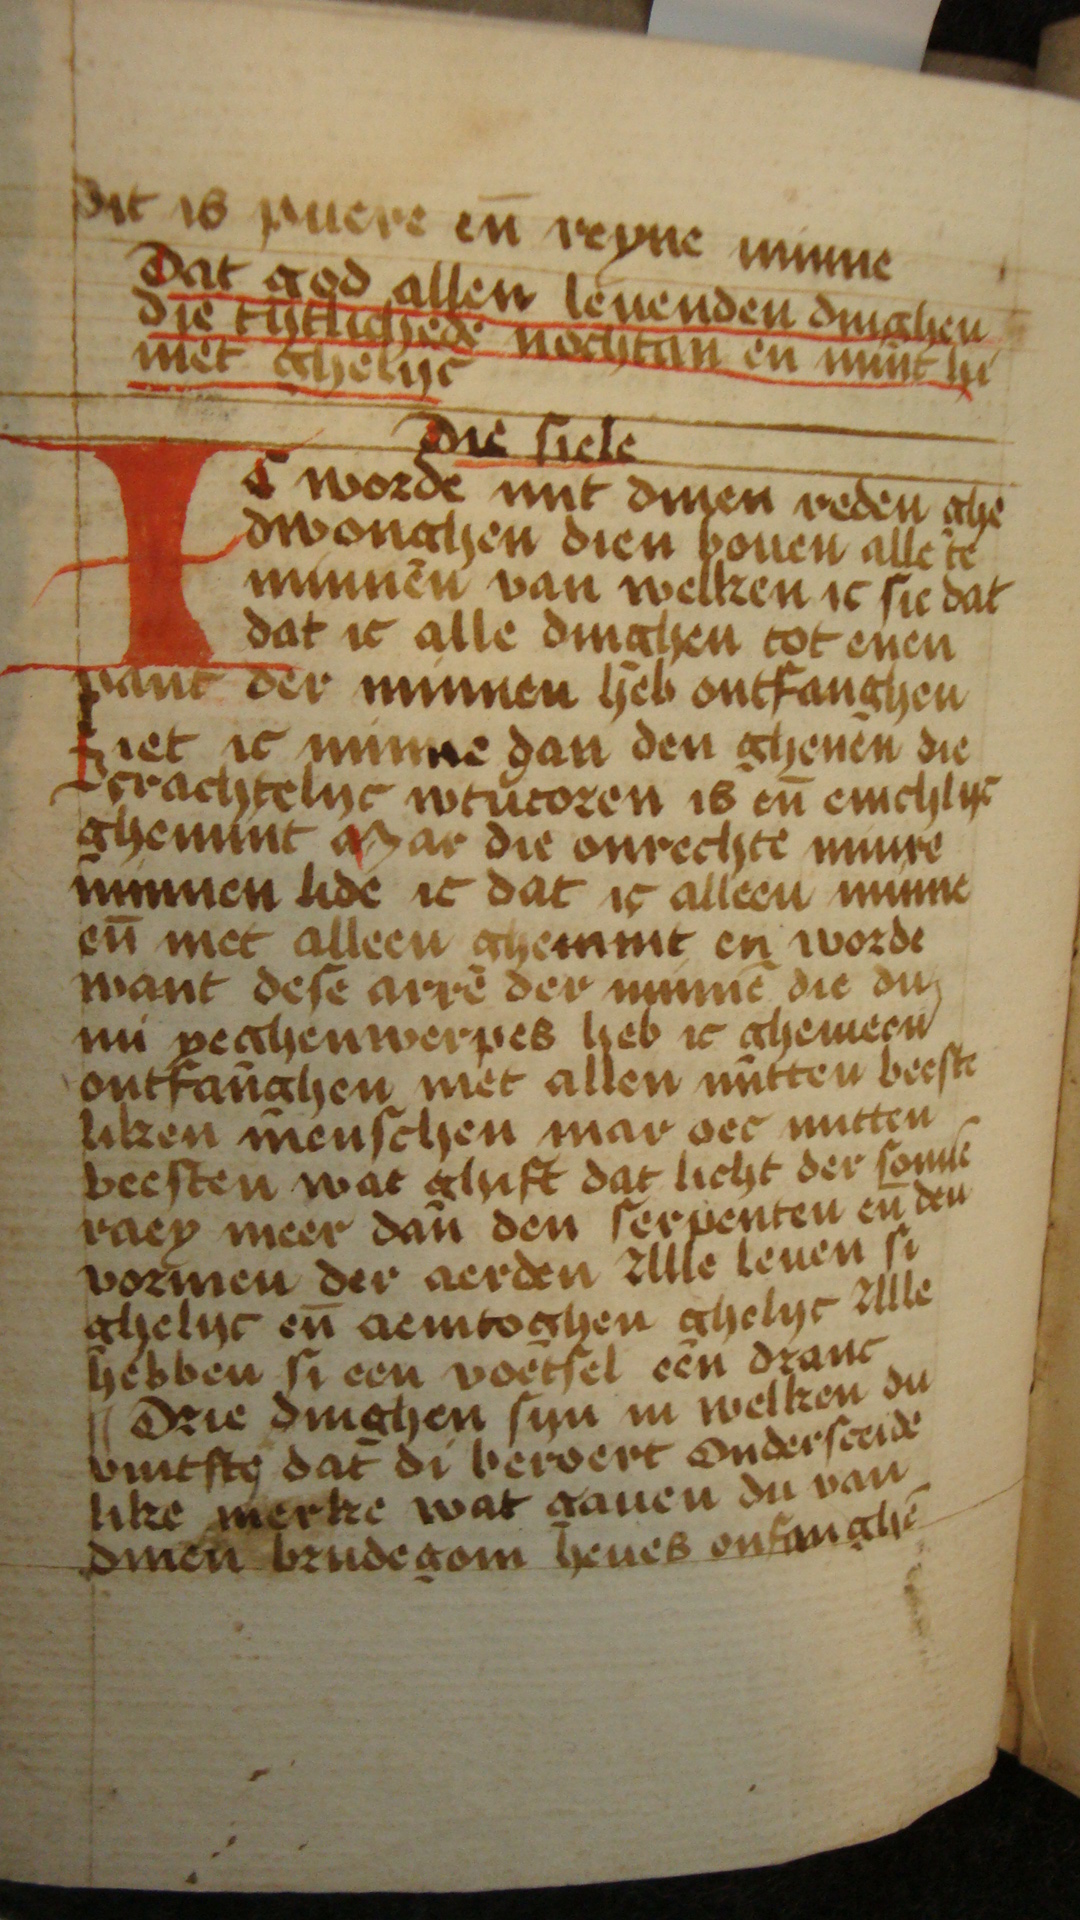 Dit is puere en̄ reyne minne
Dat god allen leuenden dinghen
die tijtlichede nochtan en mīnt hi
niet ghelijc
Die siele
Ic worde mit dinen reden ghe
dwonghen dien bouen alle te
minnen van welken ic sie dat
dat ic alle dinghen tot enen
pant der minnen heb ontfanghen
Siet ic minne dan den ghenen die
crachtelijc wtūcoren is en̄ einchlijc
ghemint Mar die onrechte minne
minnen lide ic dat ic alleen minne
en̄ niet alleen ghemint en worde
want dese arrē der minnē die du
mi yeghenwerpes heb ic ghemeen
ontfanghen met allen nūtten beeste
liken menschen mar oec mitten
beesten wat ghift dat licht der sonnē
raey meer dan den serpenten en̄ den
vormen der aerden Alle leuen si
ghelijc en̄ aemtoghen ghelijc Alle
hebben si een voetsel een dranc
Drie dinghen sijn in welken du
vintste dat di beroert Ondersceide
like merke wat gauen du van
dinen brudegom heues onfanghē